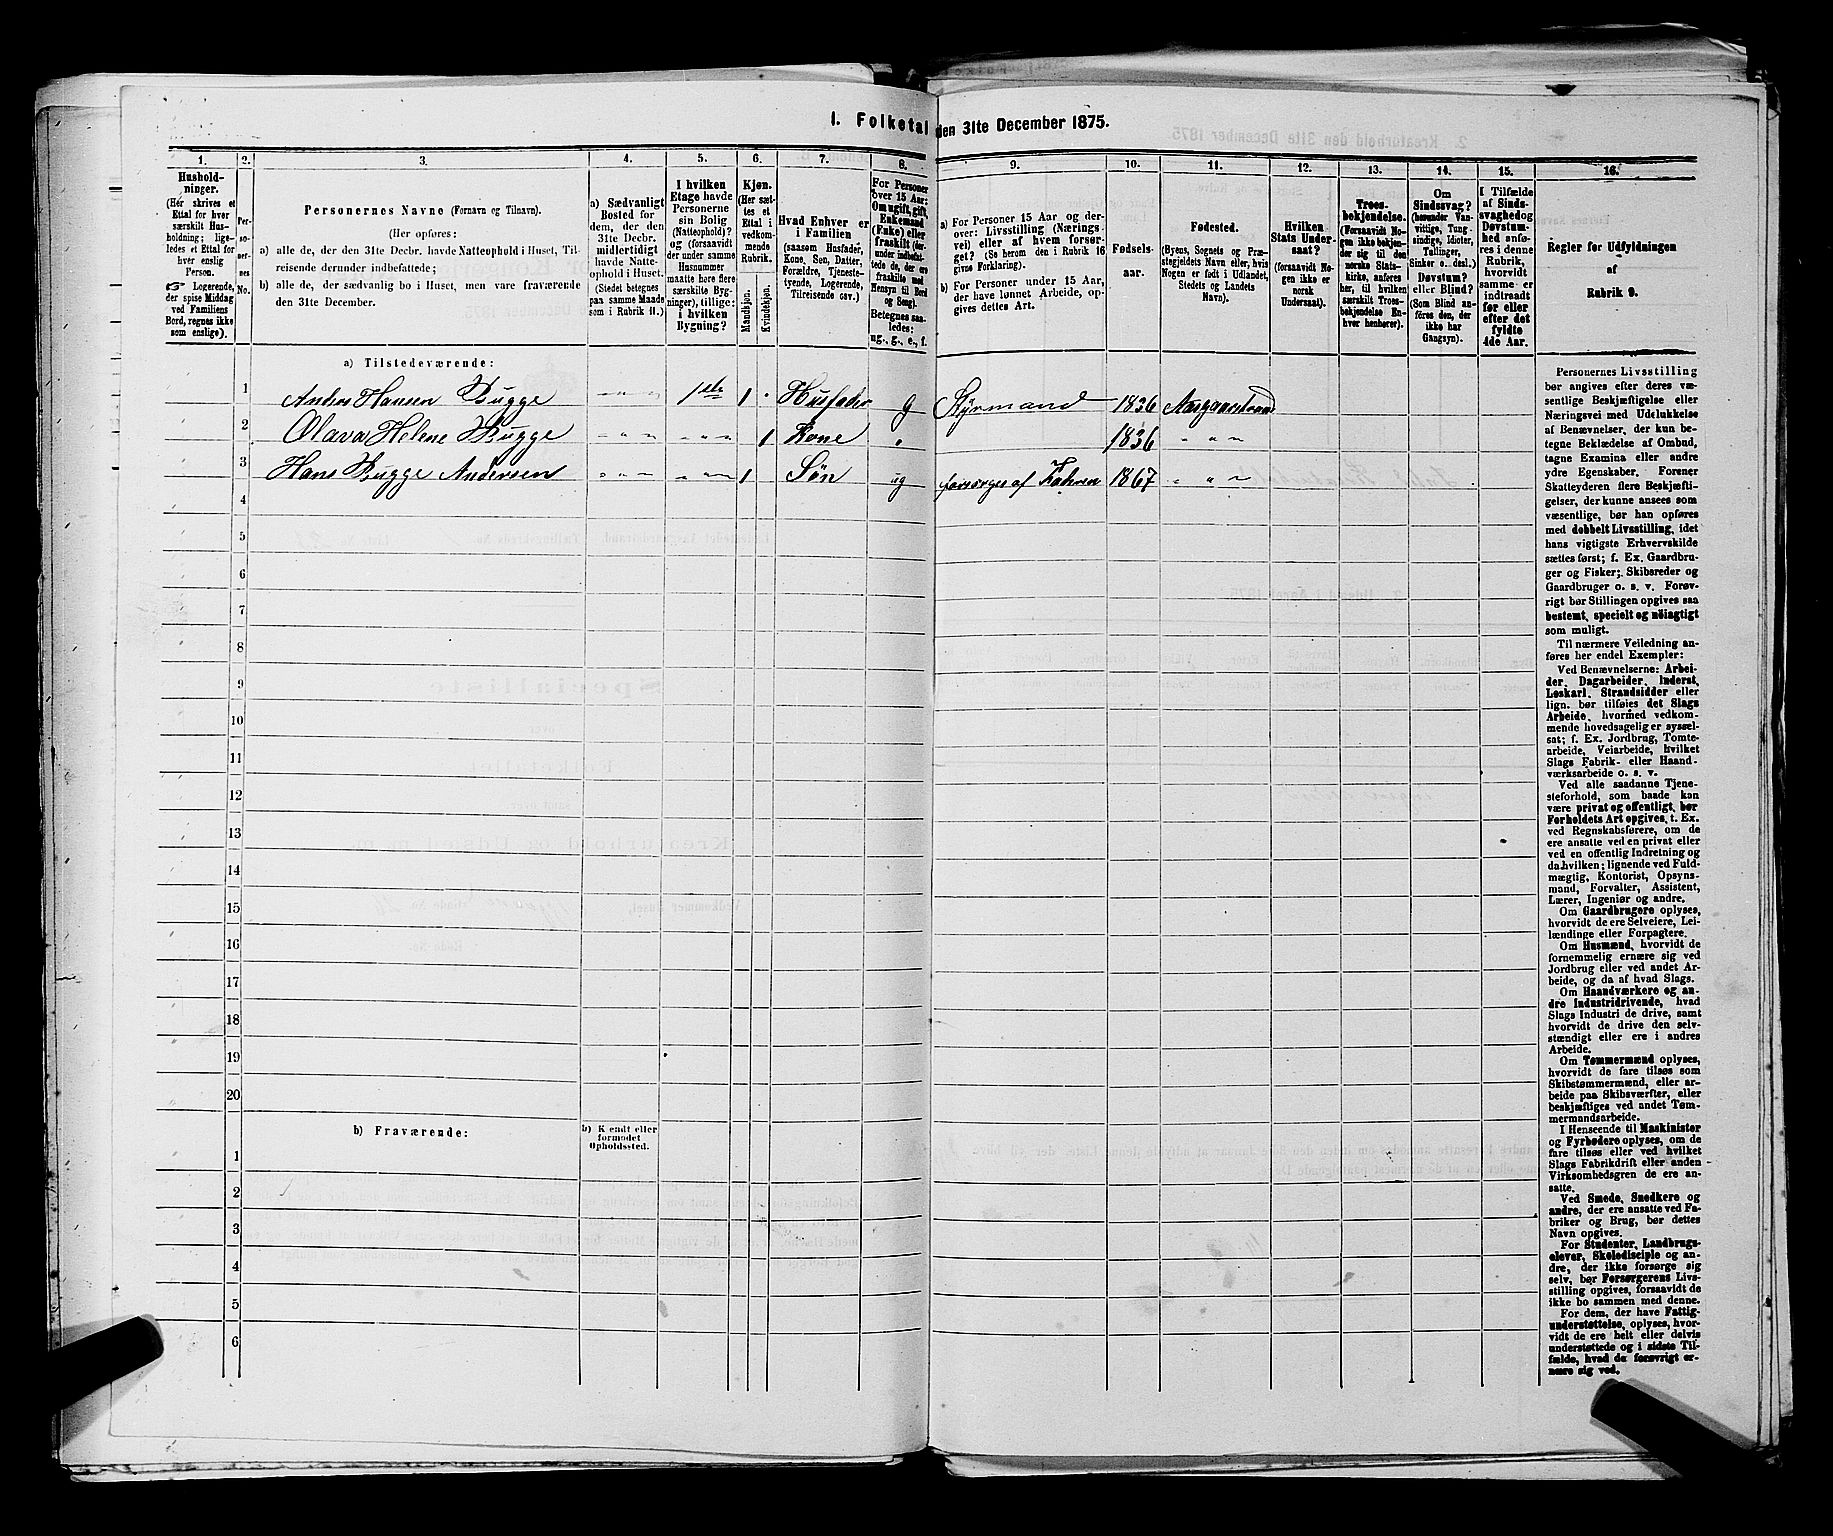 1. Folketal den 31te December 1875.
1.
2.
3.
4.
5.
6.
7.
8.
9.
10.
11.
12.
13.
14.
15.
16.
Hushold-
ninger.
(Her skrives et
Ettal for hver
særskilt Hus-
holdning; lige-
ledes et Ettal for
hver enslig
Person.
☞ Logerende,
der spise Middag
ved Familiens
Bord, regnes ikke
som enslige).
Per-
so-
ner-
nes
No.
Personernes Navne (Fornavn og Tilnavn).
(Her opføres:
a) alle de, der den 31te Decbr. havde Natteophold i Huset, Til-
reisende derunder indbefattede;
b) alle de, der sædvanlig bo i Huset, men vare fraværende
den 31te December.
a) Sædvanligt
Bosted for
dem, der den
31te Decbr.
midlertidigt
havde Natte-
ophold i Huset.
(Stedet betegnes
paa samme Maade
som i Rubrik 11.)
I hvilken
Etage havde
Personerne
sin Bolig
(Natteophold)?
og (forsaavidt
der under samme
Husnummer
maatte høre flere
særskilte Byg-
ninger), tillige:
i hvilken
Bygning?
Kjøn.
(Her sæt-
tes et
Ettal i
vedkom-
mende
Rubrik.
Mandskjøn.
Kvindekjøn.
Hvad Enhver er
i Familien
(saasom Husfader,
Kone, Søn, Datter,
Forældre, Tjeneste-
tyende, Logerende,
Tilreisende osv.)
For Personer
over 15 Aar:
Om ugift, gift,
Enkemand
(Enke) eller
fraskilt (der-
under indbefat-
tede de, der ere
fraskilte med
Hensyn til Bord
og Seng).
Betegnes saa-
ledes:
ug., g., e., f.
a) For Personer 15 Aar og der-
over: Livsstilling (Nærings-
vei) eller af hvem forsør-
get? (Se herom den i Rubrik 16
givne Forklaring).
b) For Personer under 15 Aar,
der have lønnet Arbeide, op-
gives dettes Art.
Fødsels-
aar.
Fødested.
(Byens, Sognets og Præ-
stegjeldets Navn eller, hvis
Nogen er født i Udlandet,
Stedets og Landets
Navn).
Hvilken
Stats Under-
saat?
(forsaavidt No-
gen ikke er
norsk
Undersaat).
Troes-
bekjendelse.
(Forsaavidt No-
gen ikke bekjen-
der sig til den
norske Stats-
kirke, anføres
her, til hvilken
særskilt Troes-
bekjendelse En-
hver henhører).
Om
Sindssvag?
(herunder Van-
vittige, Tung-
sindige, Idioter,
Tullinger,
Sinker o. desl.)
Døvstum?
eller Blind?
(Som Blind an-
føres den, der
ikke har
Gangsyn).
I Tilfælde
af Sinds-
svaghed og
Døvstum-
hed anfø-
res i denne
Rubrik,
hvorvidt
samme er
indtraadt
før eller
efter det
fyldte
4de Aar.
Regler for Udfyldningen
af
Rubrik 9.
a) Tilstedeværende:
1 Anders Hansen Bugge - " - 1ste 1 . Husfader g Styrmand 1836 Aasgaardstrand
2 Olava Helene Bugge - " - - " - 1 Kone " 1836 - " -
3 Hans Bugge Andersen - " - - " - 1 Søn ug forsørges af Faderen 1867 - " -
4
5
6
7
8
9
10
11
12
13
14
15
16
17
18
19
20
b) Fraværende:
b) Kendt eller
formodet
Opholdssted.
1
2
3
4
5
6
Personernes Livsstilling
bør angives efter deres væ-
sentlige Beskjæftigelse eller
Næringsvei med Udelukkelse
af Benævnelser, der kun be-
tegne Beklædelse af Ombud,
tagne Examina eller andre
ydre Egenskaber. Forener
Skatteyderen flere Beskjæfti-
gelser, der kunne ansees som
væsentlige, bør han opføres
med dobbelt Livsstilling, idet
hans vigtigste Erhvervskilde
sættes først; f. Ex. Gaardbru-
ger og Fisker; Skibsreder og
Gaardbruger o. s. v. Forøv-
rigt bør Stillingen opgives saa
bestemt, specielt og nöiagtigt
som muligt.
Til nærmere Veiledning an-
føres her endel Exempler:
Ved Benævnelserne: Arbei-
der, Dagarbeider, Inderst,
Løskarl, Strandsidder eller
lign. bør tilføies det Slags
Arbeide, hvormed vedkom-
mende hovedsagelig er syssel-
sat; f. Ex. Jordbrug, Tomte-
arbeide, Veiarbeide, hvilket
Slags Fabrik- eller Haand-
værksarbeide o. s. v.
Ved alle saadanne Tjene-
steforhold, som baade kan
være privat og offentligt, bør
Forholdets Art opgives, t. Ex.
ved Regnskabsførere, om de
ere ansatte ved en privat eller
ved en offentlig Indretning og
da hvilken; lignende ved Fuld-
mægtig, Kontorist, Opsyns-
mand, Forvalter, Assistent,
Lærer, Ingeniør og andre.
Om Gaardbrugere oplyses,
hvorvidt de ere Selveiere, Lei-
lændinge eller Forpagtere.
Om Husmænd, hvorvidt de
fornemmelig ernære sig ved
Jordbrug eller ved andet Ar-
beide, og da af hvad Slags.
Om Haandværkere og an-
dre Industridrivende, hvad
Slags Industri de drive, samt
hvorvidt de drive den selv-
stændigt eller ere i andres
Arbeide.
Om Tømmermænd oplyses,
hvorvidt de fare tilsøs som
Skibstømmermænd, eller ar-
beide paa Skibsværfter, eller
beskjæftiges ved andet Tøm-
mermandsarbeide.
I Henseende til Maskinister
og Fyrbødere oplyses, om de
fare tilsøs eller ved hvilket
Slags Fabrikdrift eller anden
Virksomhedsgren de ere an-
satte.
Ved Smede, Snedkere og
andre, der ere ansatte ved Fa-
briker og Brug, bør dettes
Navn opgives.
For Studenter, Landbrugs-
elever, Skoledisciple og an-
dre, der ikke forsørge sig
selv, bør Forsørgerens Livs-
stilling opgives, forsaavidt de
ikke bo sammen med denne.
For dem, der have Fattig-
understøttelse, oplyses, hvor-
vidt de ere helt eller delvis
understøttede og i sidste Til-
fælde, hvad de forøvrigt er-
nære sig ved.